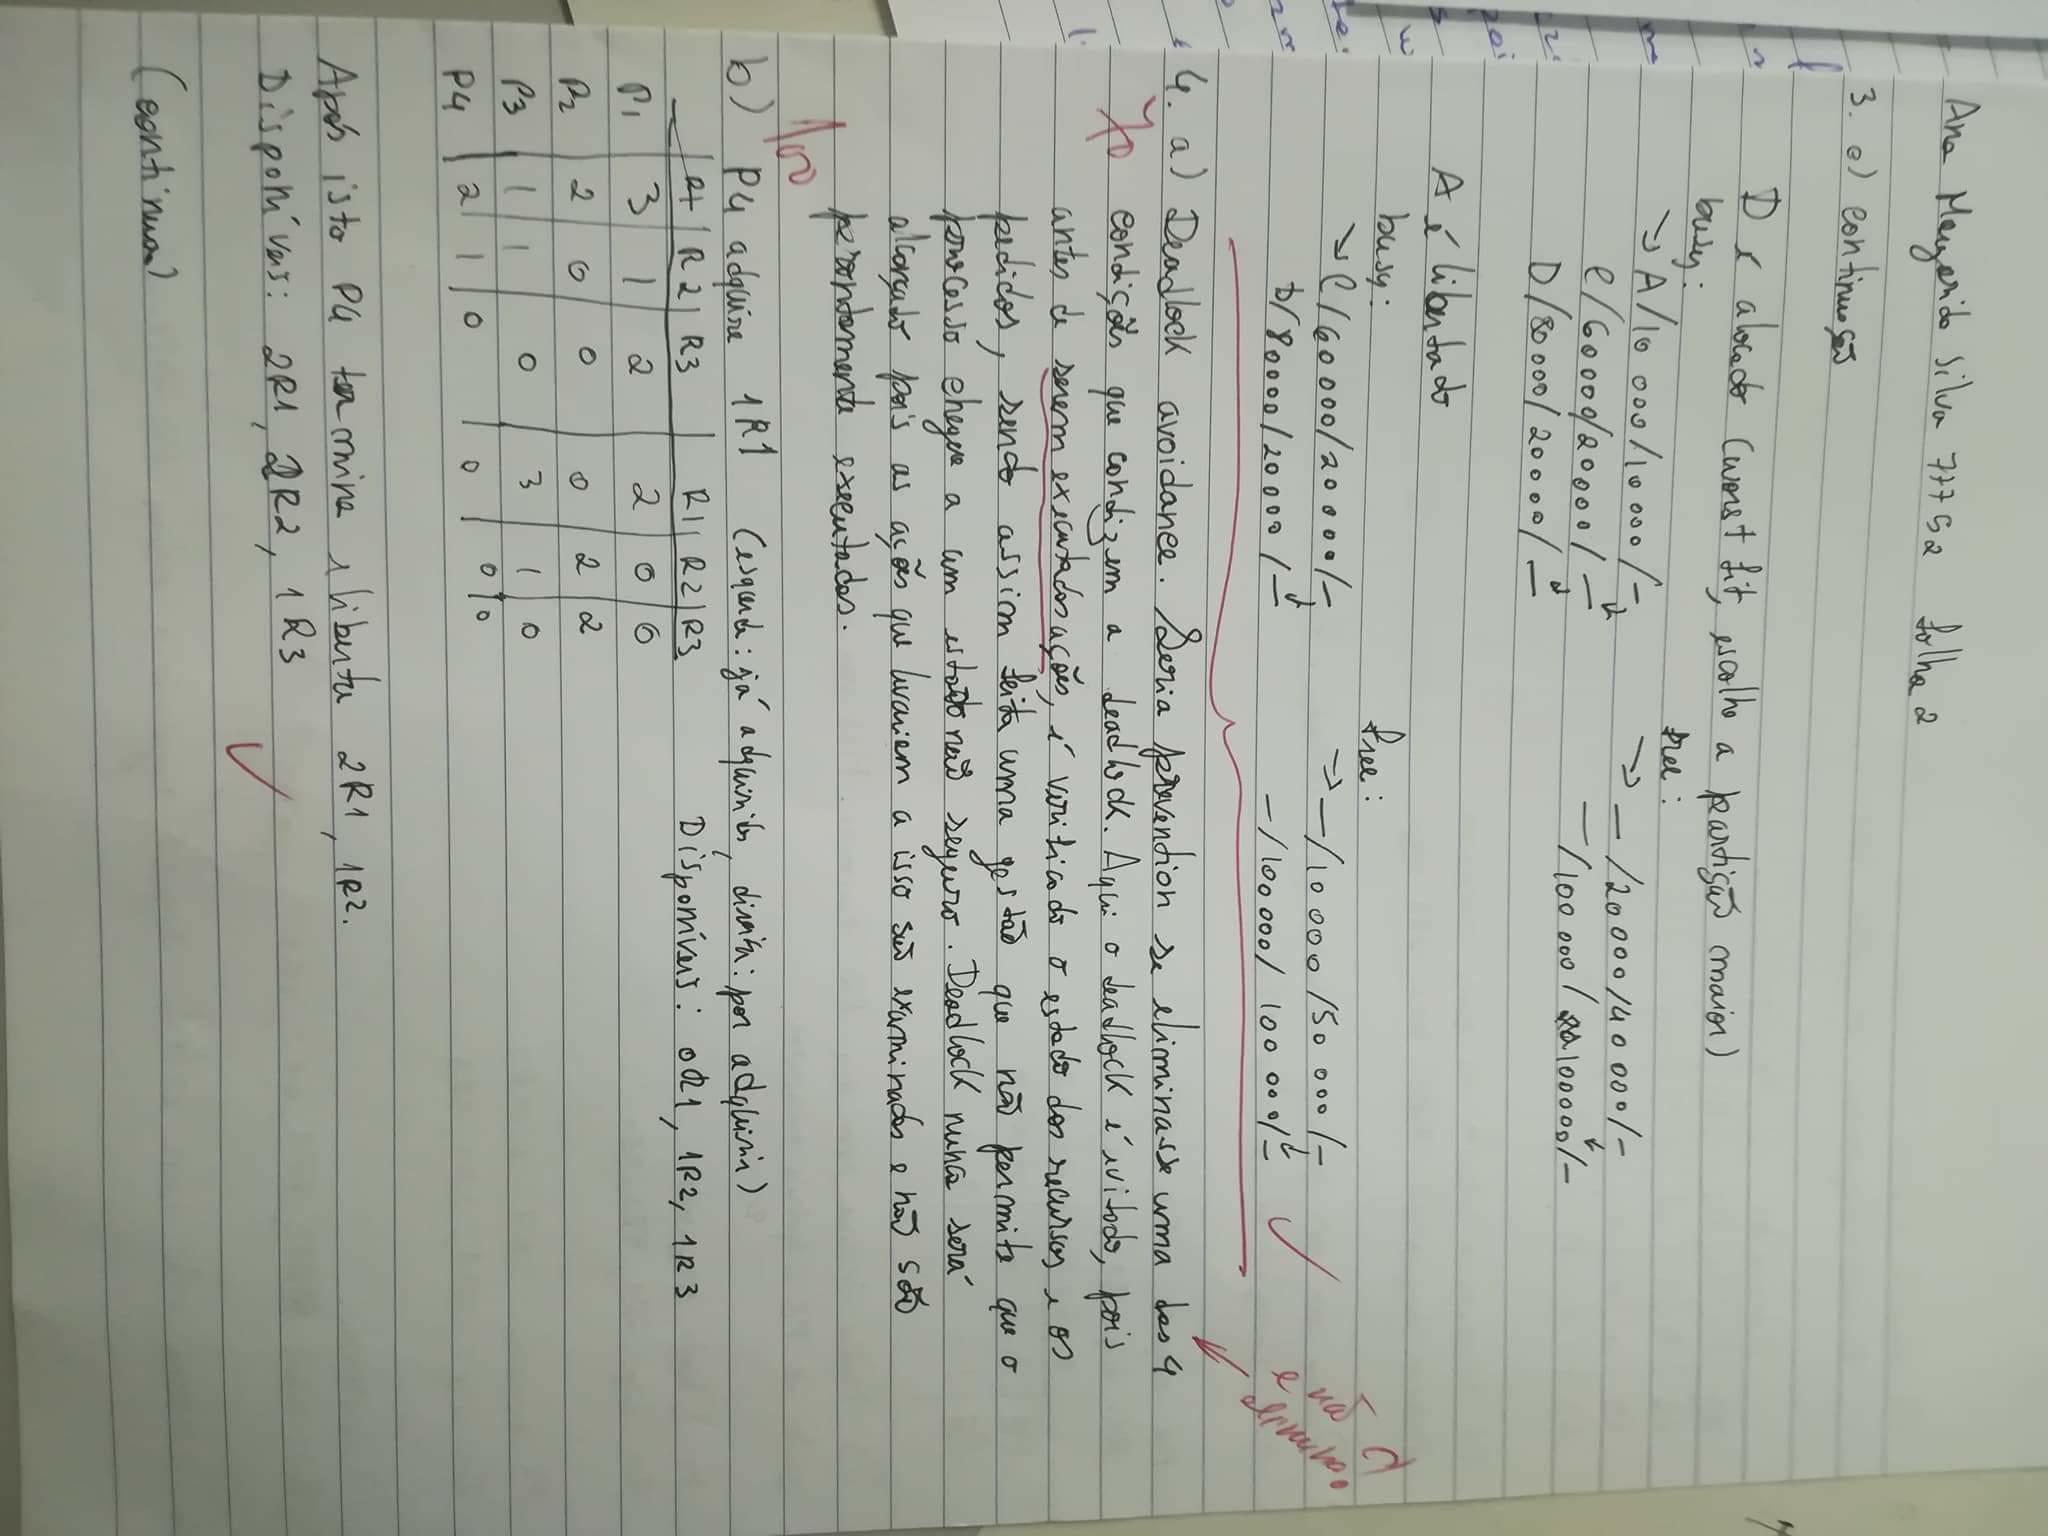 Ana Margarida Silva 77752 folha 2
3. c) continuação
D é alocado (worst fit, escolhe a partição maior)
busy: free:
→ A/10 000/10 000/– → –/20000/40 000/–
C/60000/20000/– –/100 000/100000/–
D/80000/20000/–
A é libertado
busy: free:
→ C/60000/20000/– → –/10000/50 000/–
D/80000/20000/– –/100000/100 000/–
e não elimina?
4. a) Deadlock avoidance. Seria prevention se eliminasse uma das 4
70
condições que condizem a deadlock. Aqui o deadlock é evitado, pois
antes de serem executadas ações, é verificado o estado dos recursos e os
pedidos, sendo assim feita uma gestão que não permite que o
processo chegue a um estado não seguro. Deadlock nunca será
alcançado pois as ações que levariam a isso são examinadas e não são
prontamente executadas.
100
b) P4 adquire 1R1 (esquerda: já adquiridos, direita: por adquirir)
R1 R2 R3 R1 R2 R3 Disponíveis: 0R1, 1R2, 1R3
P1 3 1 2 2 0 0
P2 2 0 0 0 2 2
P3 1 1 0 3 1 0
P4 2 1 0 0 0 0
Após isto P4 termina e liberta 2R1, 1R2.
Disponíveis: 2R1, 2R2, 1R3
(continua)